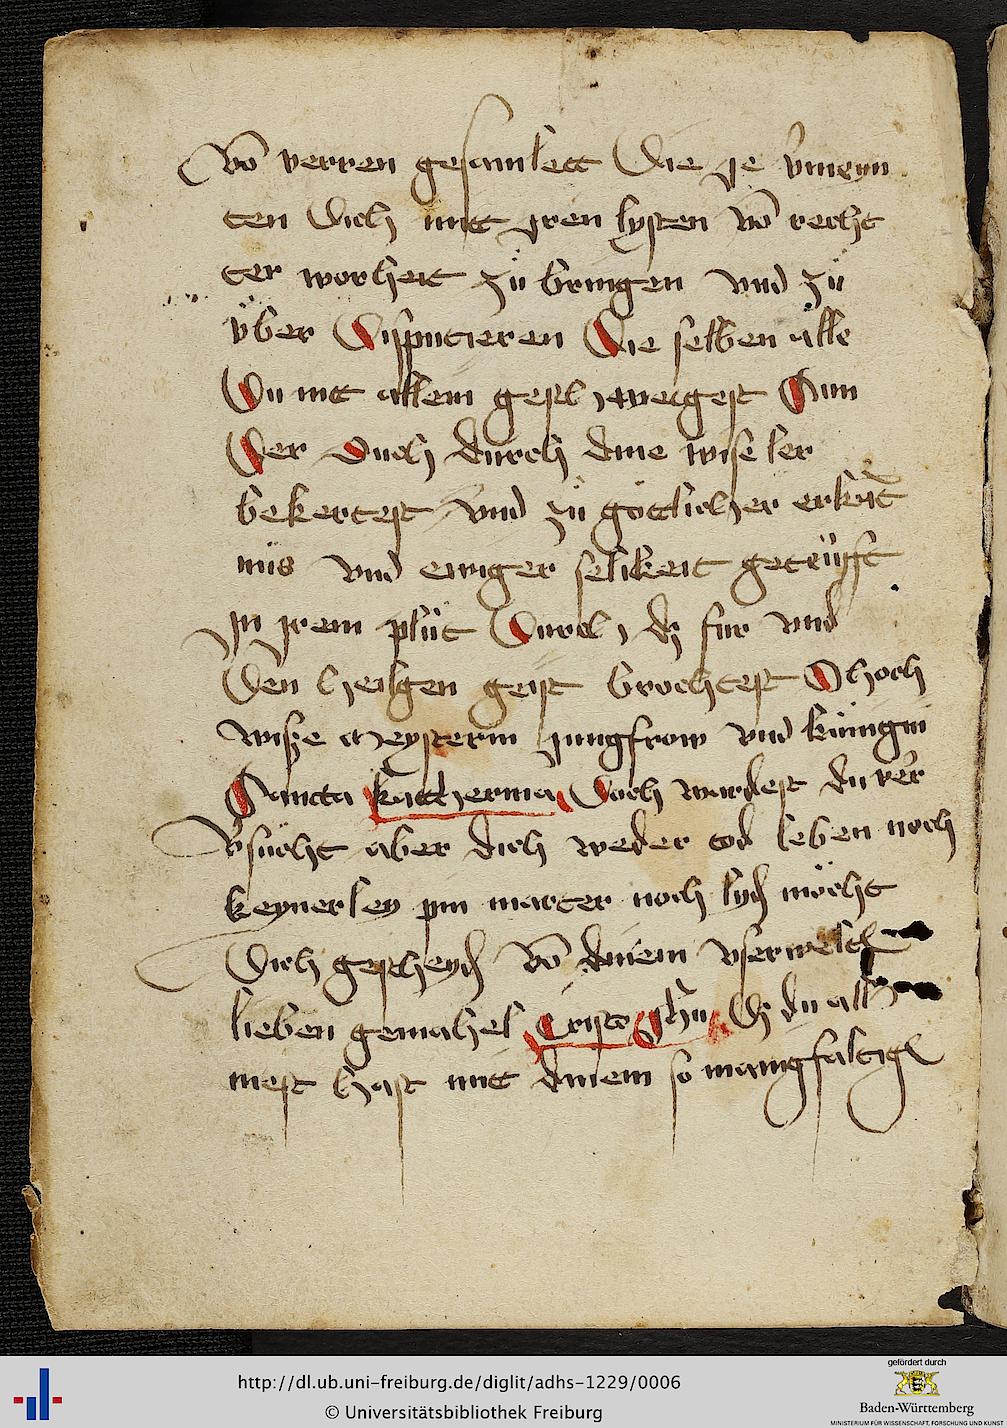 Vō verren gesamlett Die je v̄meyn
ten Dich mitt jren lysten vō recht
ter worheit zü bringen vnd zü
v̈ber Disputieren Die selben alle
Du mit allem geschweigest Sun
Der Ouch durch dine wise ler
bekertest vnd zü götlicher erkāt
nüs vnd ewiger selikeit getöifft
In jrem plüt Durch dz für vnd
Den heilgen geist brochtest O hoch
wisze meysterin jungfrow vnd küngin
Sancta Kattherina Doch wurdest du
v̄sücht aber dich weder tod leben noch
keynerley pin marter noch lyd möcht
Dich gescheyd vō dinem vserwelt
lieben gemahel Cristo jhū Dz du all
mest hast mit dinem so mangfaltig
http://dl.ub.uni-freiburg.de/diglit/adhs-1229/0006
© Universitätsbibliothek Freiburg
gefördert durch
Baden-Württemberg
MINISTERIUM FÜR WISSENSCHAFT, FORSCHUNG UND KUNST